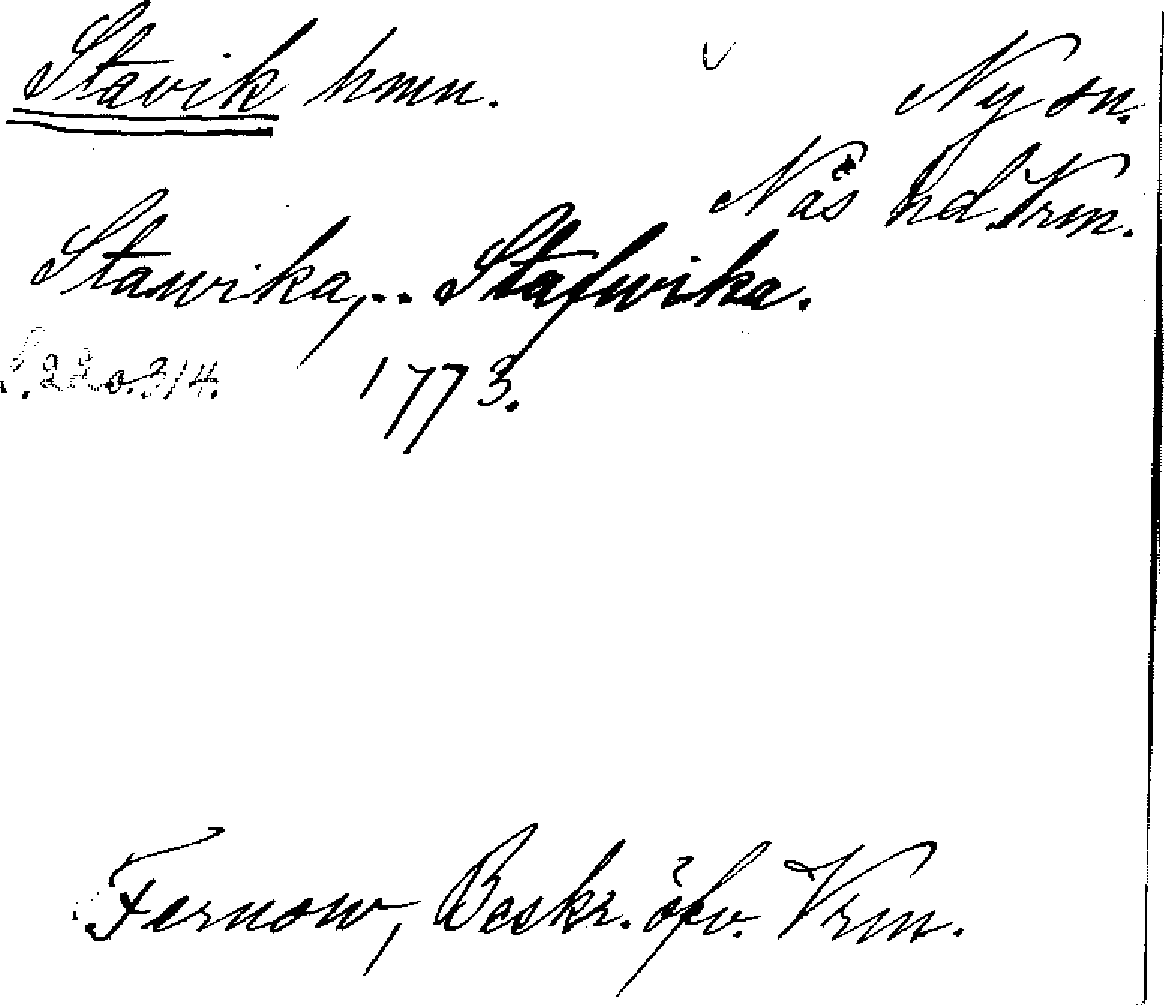 Stavik hmn.
Ny sn.
Näs hd Vrm.
Stawika, .. Stafwika.
S. 220.314. 1773.
Fernow, Beskr. öfv. Vrm.